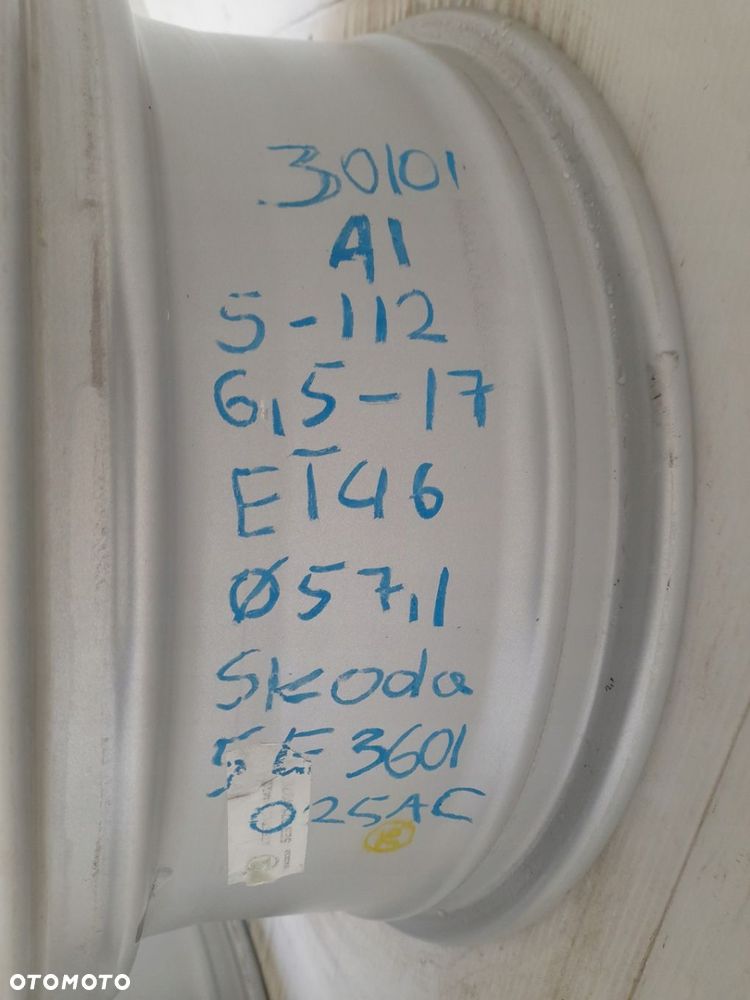 30101
A1
5-112
6,5-17
ET46
Ø57,1
Skoda
5E3601
025AC
OTOMOTO